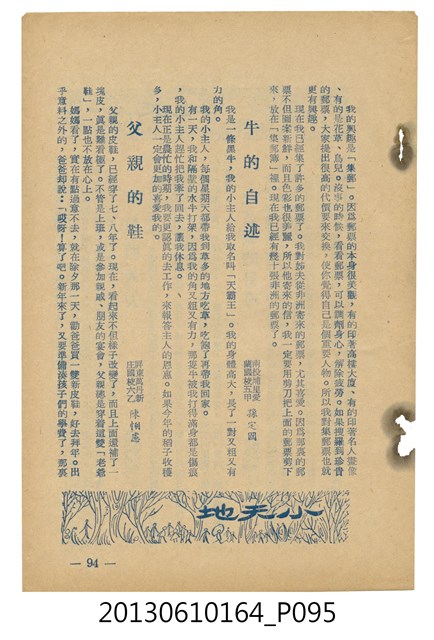 我的興趣是「集郵」。因為郵票的本身很美觀，有的印著高樓大廈、有的印著名人畫像
、有的是花草、鳥兒。沒事的時候，看看郵票，可以調劑身心，解除疲勞。如果搜羅到珍貴
的郵票，大家提出很高的代價要來交換，使你覺得自己是個重要人物。所以我對集郵票也就
更有興趣。
現在我已經集了許多的郵票了。我對姊夫從非洲寄來的郵票，尤其喜愛。因為那裏的郵
票不但圖案新鮮，而且色彩也很美麗，所以他寄來的信，我一定要用剪刀把上面的郵票剪下
來，放在「集郵簿」裡。現在我已經有幾十張非洲的郵票了。
牛的自述
南投埔里愛蘭國校五甲
孫定國
我是一條黑牛，我的小主人給我取名叫「天霸王」。我的身體高大，長了一對又粗又有
力的角。
我的小主人，每個星期天都帶我到草多的地方吃草，吃飽了再帶我回家。
有一天，我和隔壁的水牛打架，因為我的角又粗又有力，那隻牛被我打得滿身都是傷痕
，我的小主人趕忙把我牽了回去，讓我休息。
現在正是農忙的時期，我要更認真的去工作，來報答主人的恩惠。如果今年的稻子收穫
多，小主人一定會更加的喜愛我的。
父親的鞋
屏東萬丹新庄國校六乙
父親的皮鞋，已經穿了七、八年了。現在，看起來不但鞋子改變了，而且上面還補了一
塊皮，真是難看極了。不管是上班，或是參加親戚、朋友的宴會，父親總是穿着這雙「老爺
鞋」，一點也不放在心上。
媽媽看了，實在有點過意不去，就在除夕那一天，勸爸爸買一雙新皮鞋，好去拜年。出
乎意料之外的，爸爸却說：「哎呀！算了吧。新年來了，又要準備孩子們的學費了，那裏
小天地
— 94 —
20130610164_P095